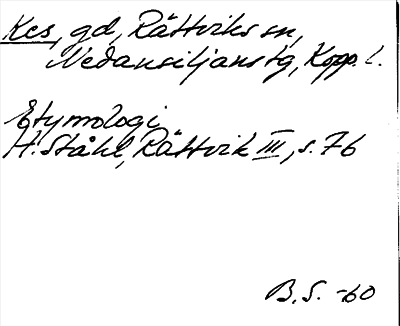 Kcs, gd, Rättviks sn,
Nedansiljans tg, Kopp. l.
Etymologi
H. Ståhl, Rättvik III, s. 76
B.S. -60